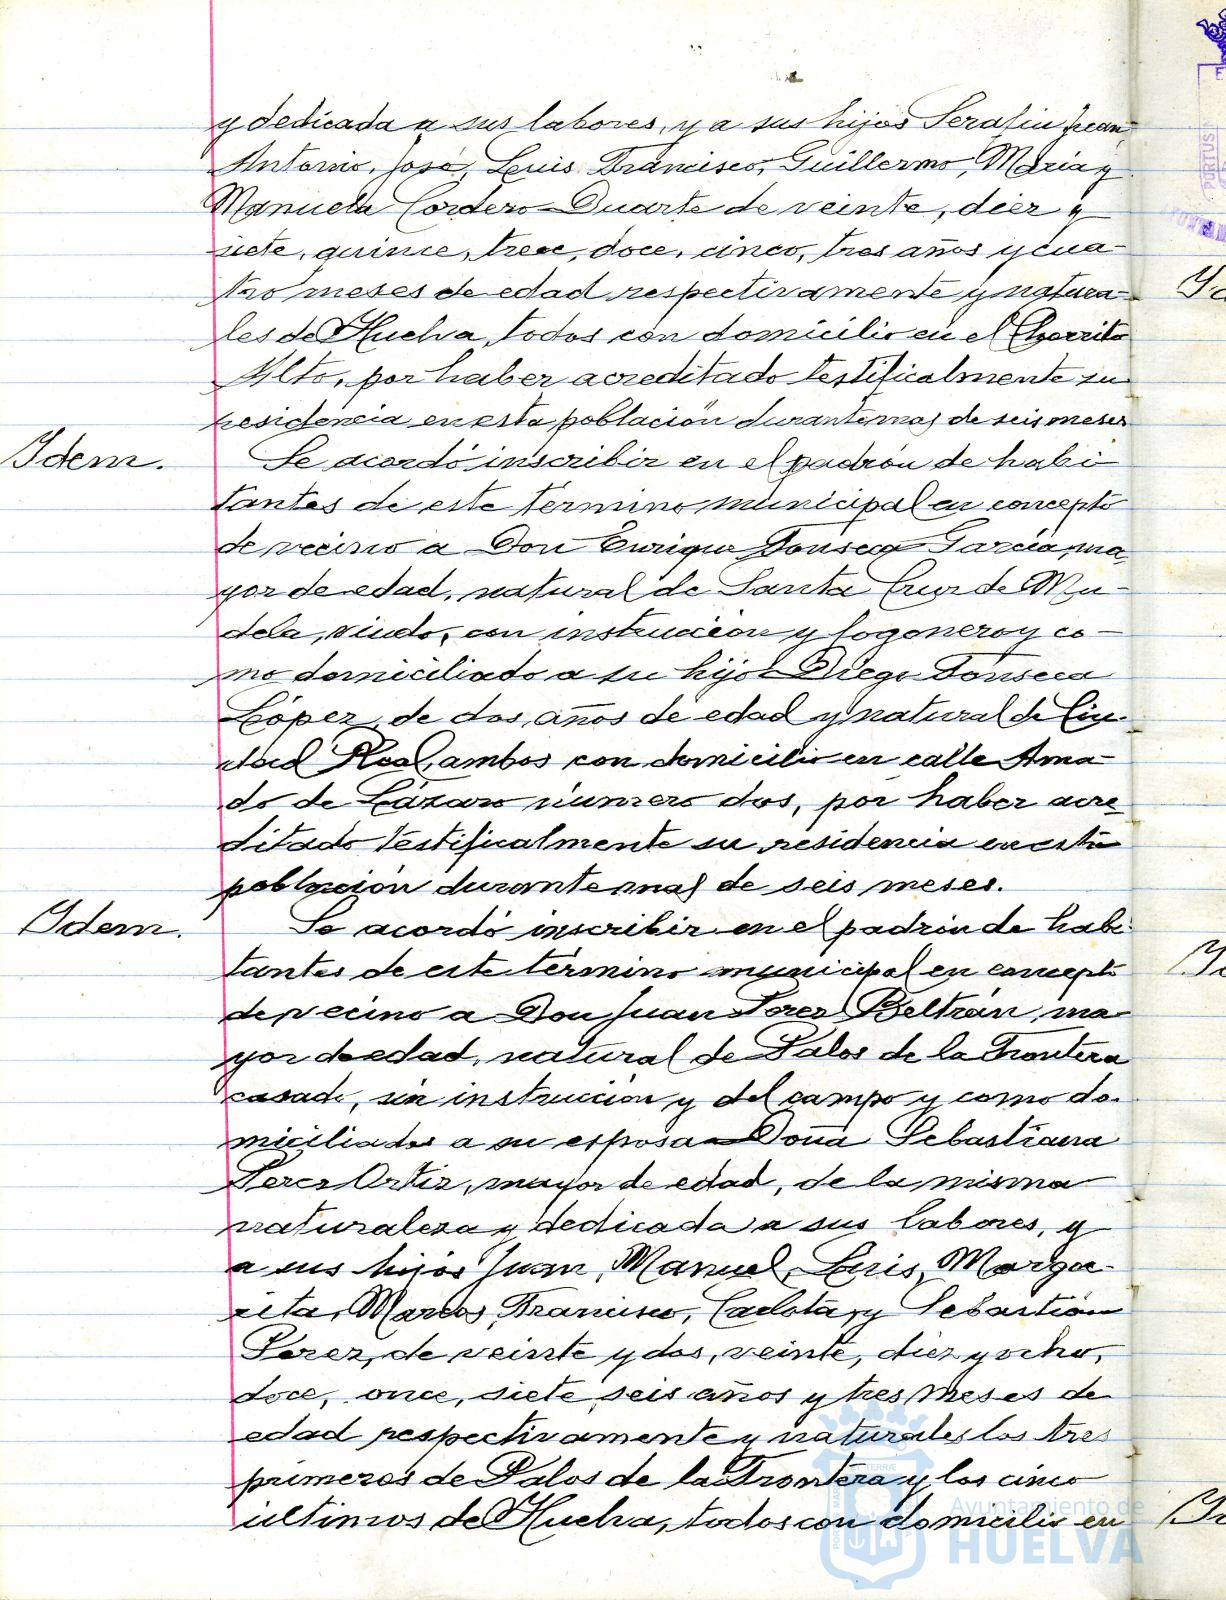 y dedicada a sus labores, y a sus hijos Serafin Juan
Antonio, José, Luis Francisco, Guillermo, Maria y
Manuela Cordero Duarte de veinte, diez y
siete, quince, trece, doce, cinco, tres años y cua-
tro meses de edad respectivamente y natura-
les de Huelva, todos con domicilio en el Chorrito
Alto, por haber acreditado testificalmente su
residencia en esta población durante mas de seis meses
Idem.
Se acordó inscribir en el padrón de habi-
tantes de este término municipal en concepto
de vecino a Don Enrique Fonseca Garcia, ma-
yor de edad, natural de Santa Cruz de Mu-
dela, viudo, con instrucción y fogonero y co-
mo domiciliado a su hijo Diego Fonseca
López, de dos años de edad y natural de Ciu-
dad Real, ambos con domicilio en calle Ama-
do de Lázaro número dos, por haber acre-
ditado testificalmente su residencia en esta
población durante mas de seis meses.
Idem.
Se acordó inscribir en el padrón de habi-
tantes de este término municipal en concepto
de vecino a Don Juan Perez Beltrán, ma-
yor de edad, natural de Palos de la Frontera
casado, sin instrucción y del campo y como do-
miciliados a su esposa Doña Sebastiana
Perez Ortiz, mayor de edad, de la misma
naturaleza y dedicada a sus labores, y
a sus hijos Juan, Manuel, Luis, Marga-
rita, Marcos, Francisco, Carlota, y Sebastián
Perez, de veinte y dos, veinte, diez y ocho,
doce, once, siete, seis años y tres meses de
edad respectivamente y naturales los tres
primeros de Palos de la Frontera y los cinco
últimos de Huelva, todos con domicilio en
Ayuntamiento de
HUELVA